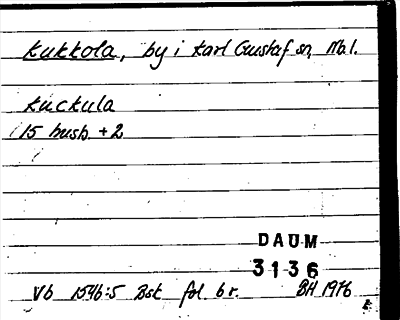 Kukkola, by i Karl Gustaf sn, Nbl.
Kuckula
15 hush. + 2
DAUM
3136
Vb 1546:5 Bsk fol. 6 r. BH 1976